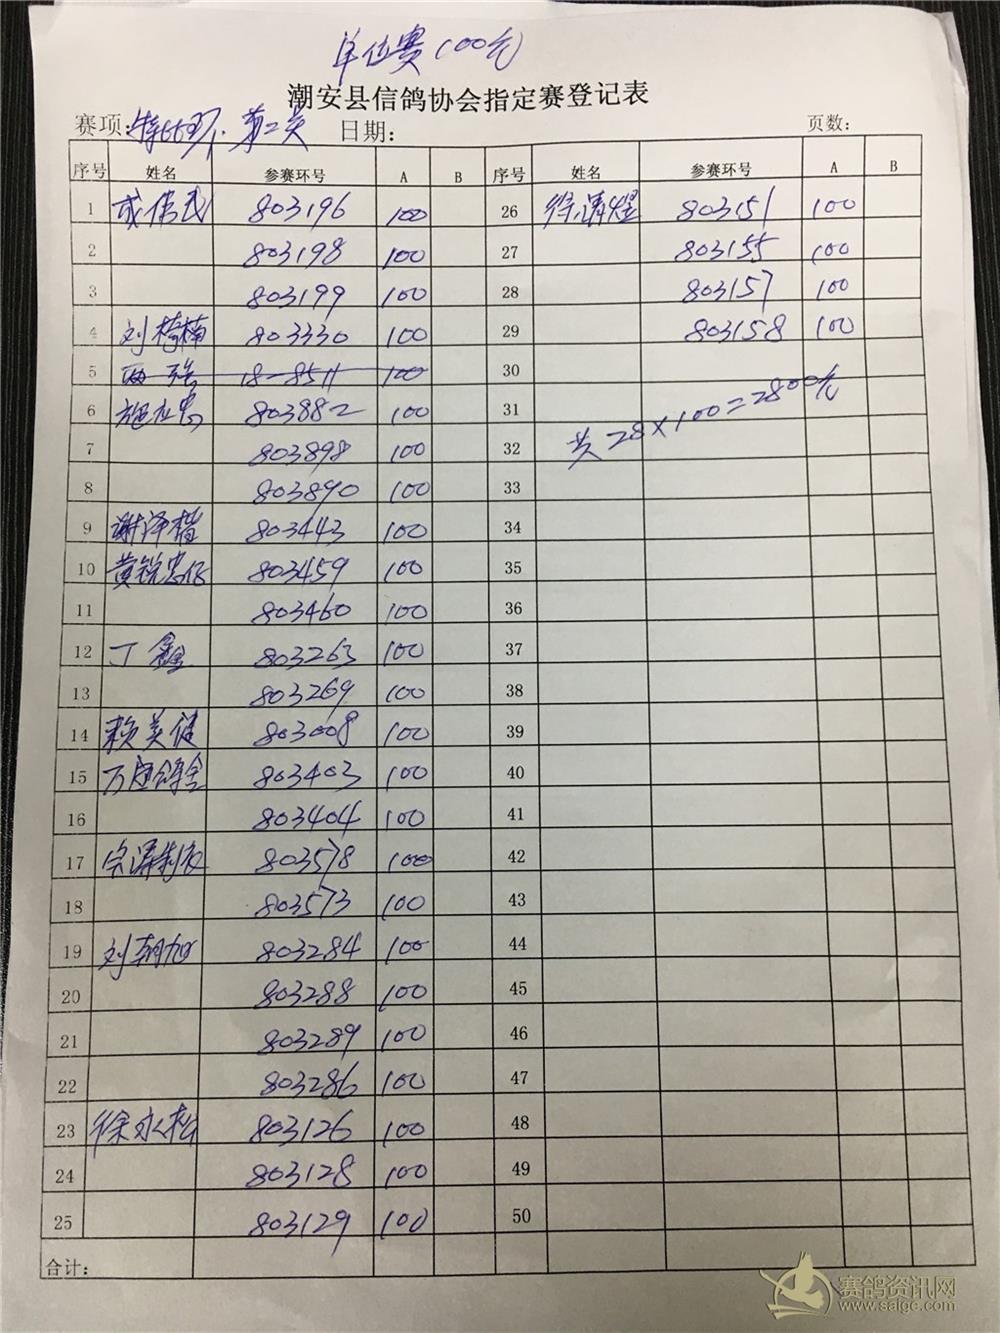 单位赛100元
潮安县信鸽协会指定赛登记表
赛项:特比环.第二关 日期: 页数:
序号 姓名 参赛环号 A B 序号 姓名 参赛环号 A B
1 成伟武 803196 100 26 徐涛煜 803151 100
2 803198 100 27 803155 100
3 803199 100 28 803157 100
4 刘椅楠 803330 100 29 803158 100
5 18-8511 100 30
6 803882 100 31
共28×100=2800元
7 803898 100 32
8 803890 100 33
9 谢泽楷 803443 100 34
10 黄锐忠仔 803459 100 35
11 803460 100 36
12 丁鑫 803263 100 37
13 803269 100 38
14 赖美健 803008 100 39
15 803403 100 40
16 803404 100 41
17 宗涛制衣 803578 100 42
18 803573 100 43
19 刘朝旭 803284 100 44
20 803288 100 45
21 803289 100 46
22 803286 100 47
23 徐永松 803126 100 48
24 803128 100 49
25 803129 100 50
合计:
赛鸽资讯网
www.saige.com